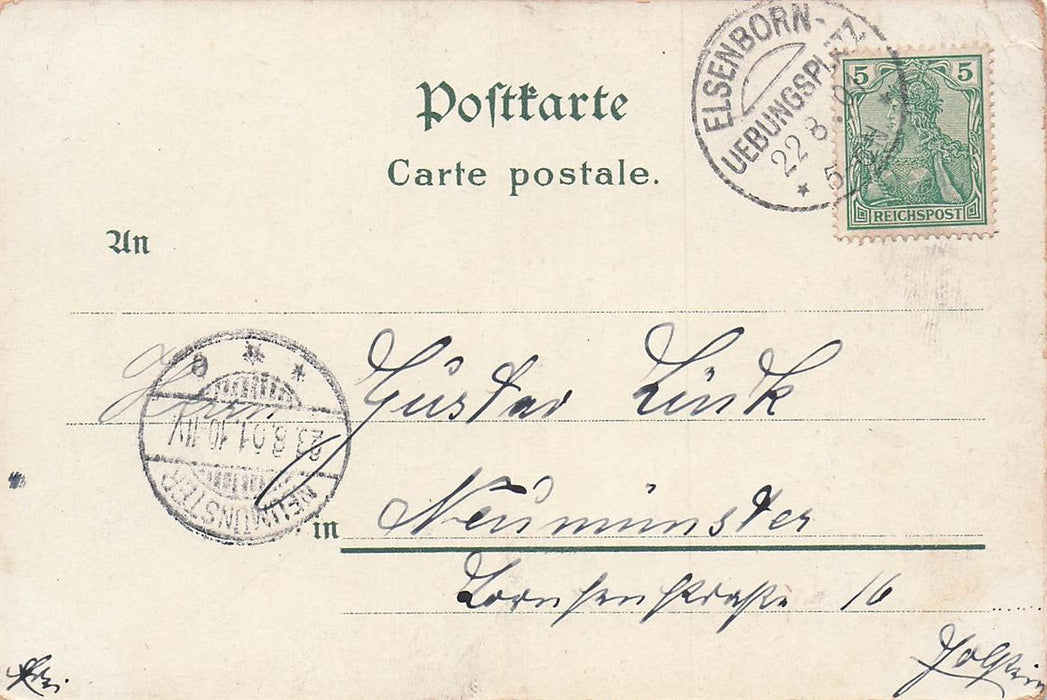 Postkarte
Carte postale.
ELSENBORN-
UEBUNGSPLATZ
22 8
5
5 5
REICHSPOST
An
Herrn Gustav Link
23.8.01.10-11V
NEUMÜNSTER
in Neumünster
Lornsenstraße 16
Holstein